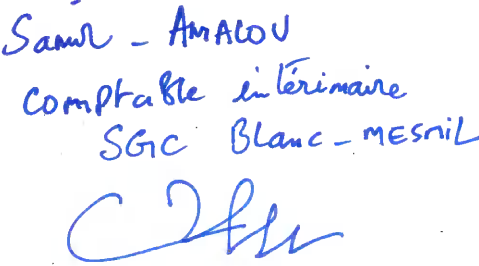 Samir - AMALOU
comptable intérimaire
SGC Blanc-MESNIL